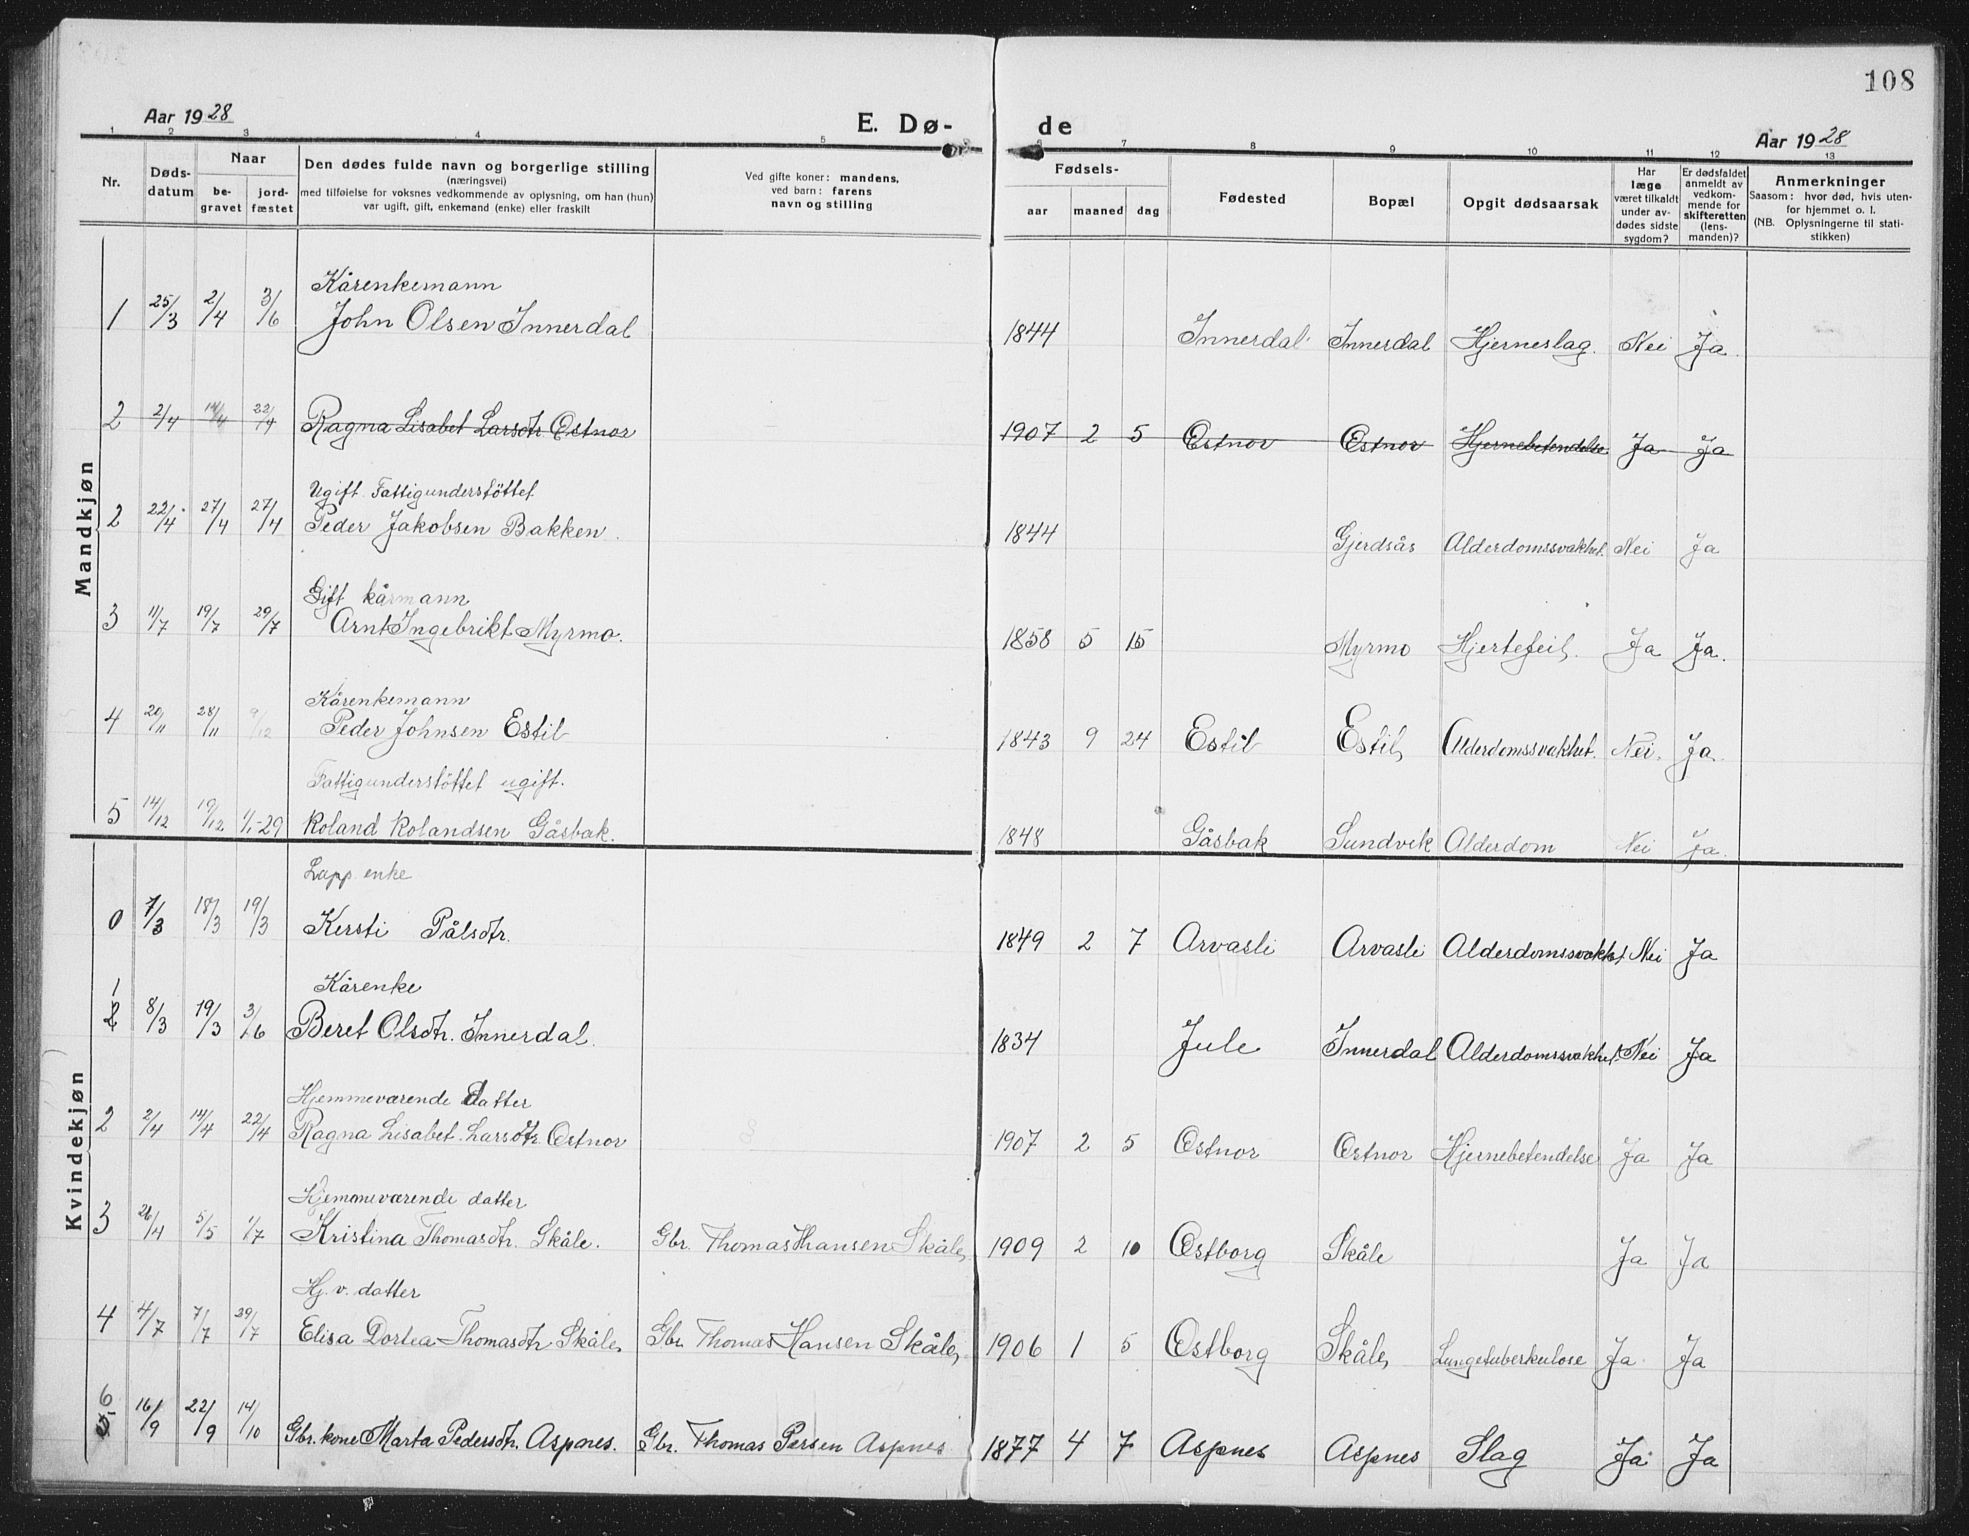 108
Aar 1928 E. Dø- de Aar 1928
1 2 3 4 5 6 7 8 9 10 11 12 13
Nr. Døds-datum Naar be-gravet jord-fæstet Den dødes fulde navn og borgerlige stilling (næringsvei) med tilføielse for voksnes vedkommende av oplysning, om han (hun) var ugift, gift, enkemand (enke) eller fraskilt Ved gifte koner: mandens, ved barn: farens navn og stilling Fødsels- aar maaned dag Fødested Bopæl Opgit dødsaarsak Har læge været tilkaldt under av-dødes sidste sygdom? Er dødsfaldet anmeldt av vedkom-mende for skifteretten (lens-manden)? Anmerkninger Saasom: hvor død, hvis uten-for hjemmet o. l. (NB. Oplysningerne til stati-stikken)
Mandkjøn
Kårenkemann
1 25/3 2/4 3/6 John Olsen Innerdal 1844 Innerdal Innerdal Hjerneslag. Nei Ja.
2 2/4 14/4 22/4 Ragna Lisabet Larsdtr Estnor 1907 2 5 Estnor Estnor Hjernebetendelse Ja Ja
Ugift Fattigunderstöttet
2 22/4 27/4 27/4 Peder Jakobsen Bakken. 1844 Gjerdsås Alderdomssvakhet. Nei Ja
Gift kårmann
3 11/7 19/7 29/7 Arnt Ingebrikt Myrmo. 1858 5 15 Myrmo Hjertefeil. Ja Ja.
Kårenkemann
4 20/11 28/11 9/12 Peder Johnsen Estil 1843 9 24 Estil Estil Alderdomssvakhet. Nei. Ja.
Fattigunderstöttet ugift.
5 14/12 19/12 1/1-29 Roland Rolandsen Gåsbak. 1848 Gåsbak Sundvik Alderdom Nei Ja.
Kvindekjøn
Lapp enke
0 7/3 18/3 19/3 Kersti Pålsdtr. 1849 2 7 Arvasli Arvasli Alderdomssvakhet Nei Ja
Kårenke
1 8/3 19/3 3/6 Beret Olsdtr. Innerdal. 1834 Jule Innerdal Alderdomssvakhet. Nei Ja
Hjemmeværende datter
2 2/4 14/4 22/4 Ragna Lisabet Larsdtr Estnor 1907 2 5 Estnor Estnor Hjernebetendelse Ja Ja
Hjemmeværende datter
3 26/4 5/5 1/7 Kristina Thomasdtr. Skåle. Gbr. Thomas Hansen Skåle 1909 2 10 Estborg Skåle Ja Ja
Hj. v. datter
4 4/7 7/7 29/7 Elisa Dortea Thomasdtr Skåle Gbr. Thomas Hansen Skåle, 1906 1 5 Estborg Skåle Lungetuberkulose Ja Ja
6 16/9 22/9 14/10 Gbr. kone Marta Pedersdtr. Aspnes. Gbr. Thomas Persen Aspnes 1877 4 7 Aspnes Aspnes Slag Ja Ja